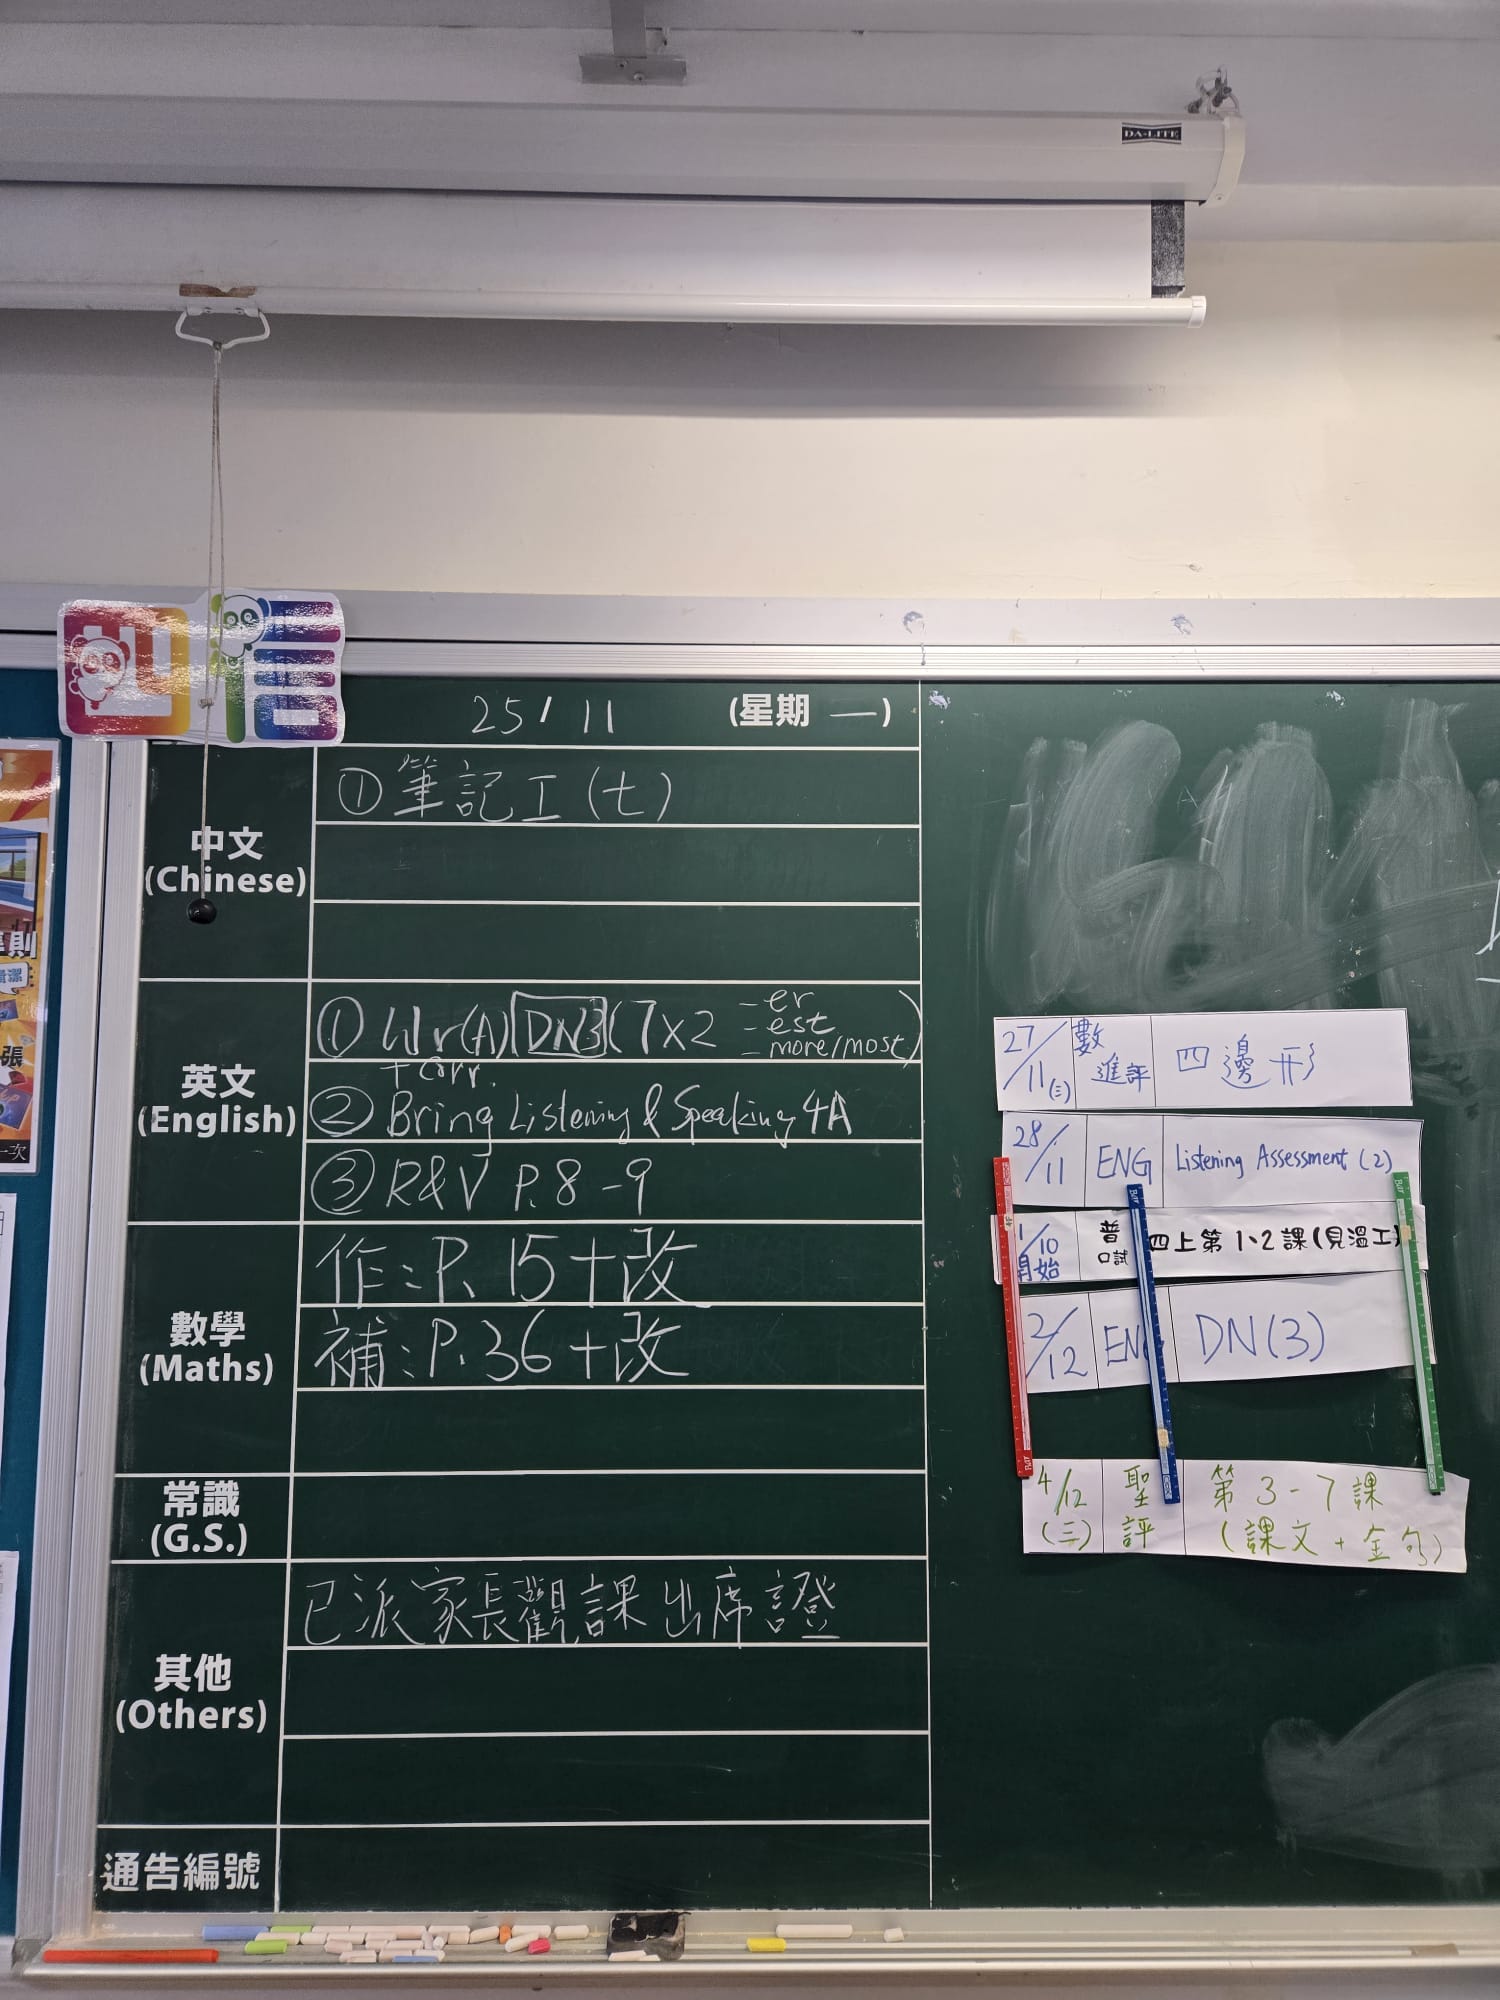 DA-LITE
四信
25 / 11 (星期 一)
中文
(Chinese)
① 筆記工 (七)
英文
(English)
① Wr(A) DN3 (7x2 -er
-est
-more/most)
+ Corr.
② Bring Listening & Speaking 4A
③ R&V P.8-9
數學
(Maths)
作:P.15+改
補:P.36+改
常識
(G.S.)
其他
(Others)
已派家長觀課出席證
通告編號
27/11(三) 數進評 四邊形
28/11 ENG Listening Assessment (2)
1/10開始 普口試 四上第1、2課(見溫工)
2/12 ENG DN(3)
4/12(三) 聖評 第3-7課
(課文+金句)
則
張
一次